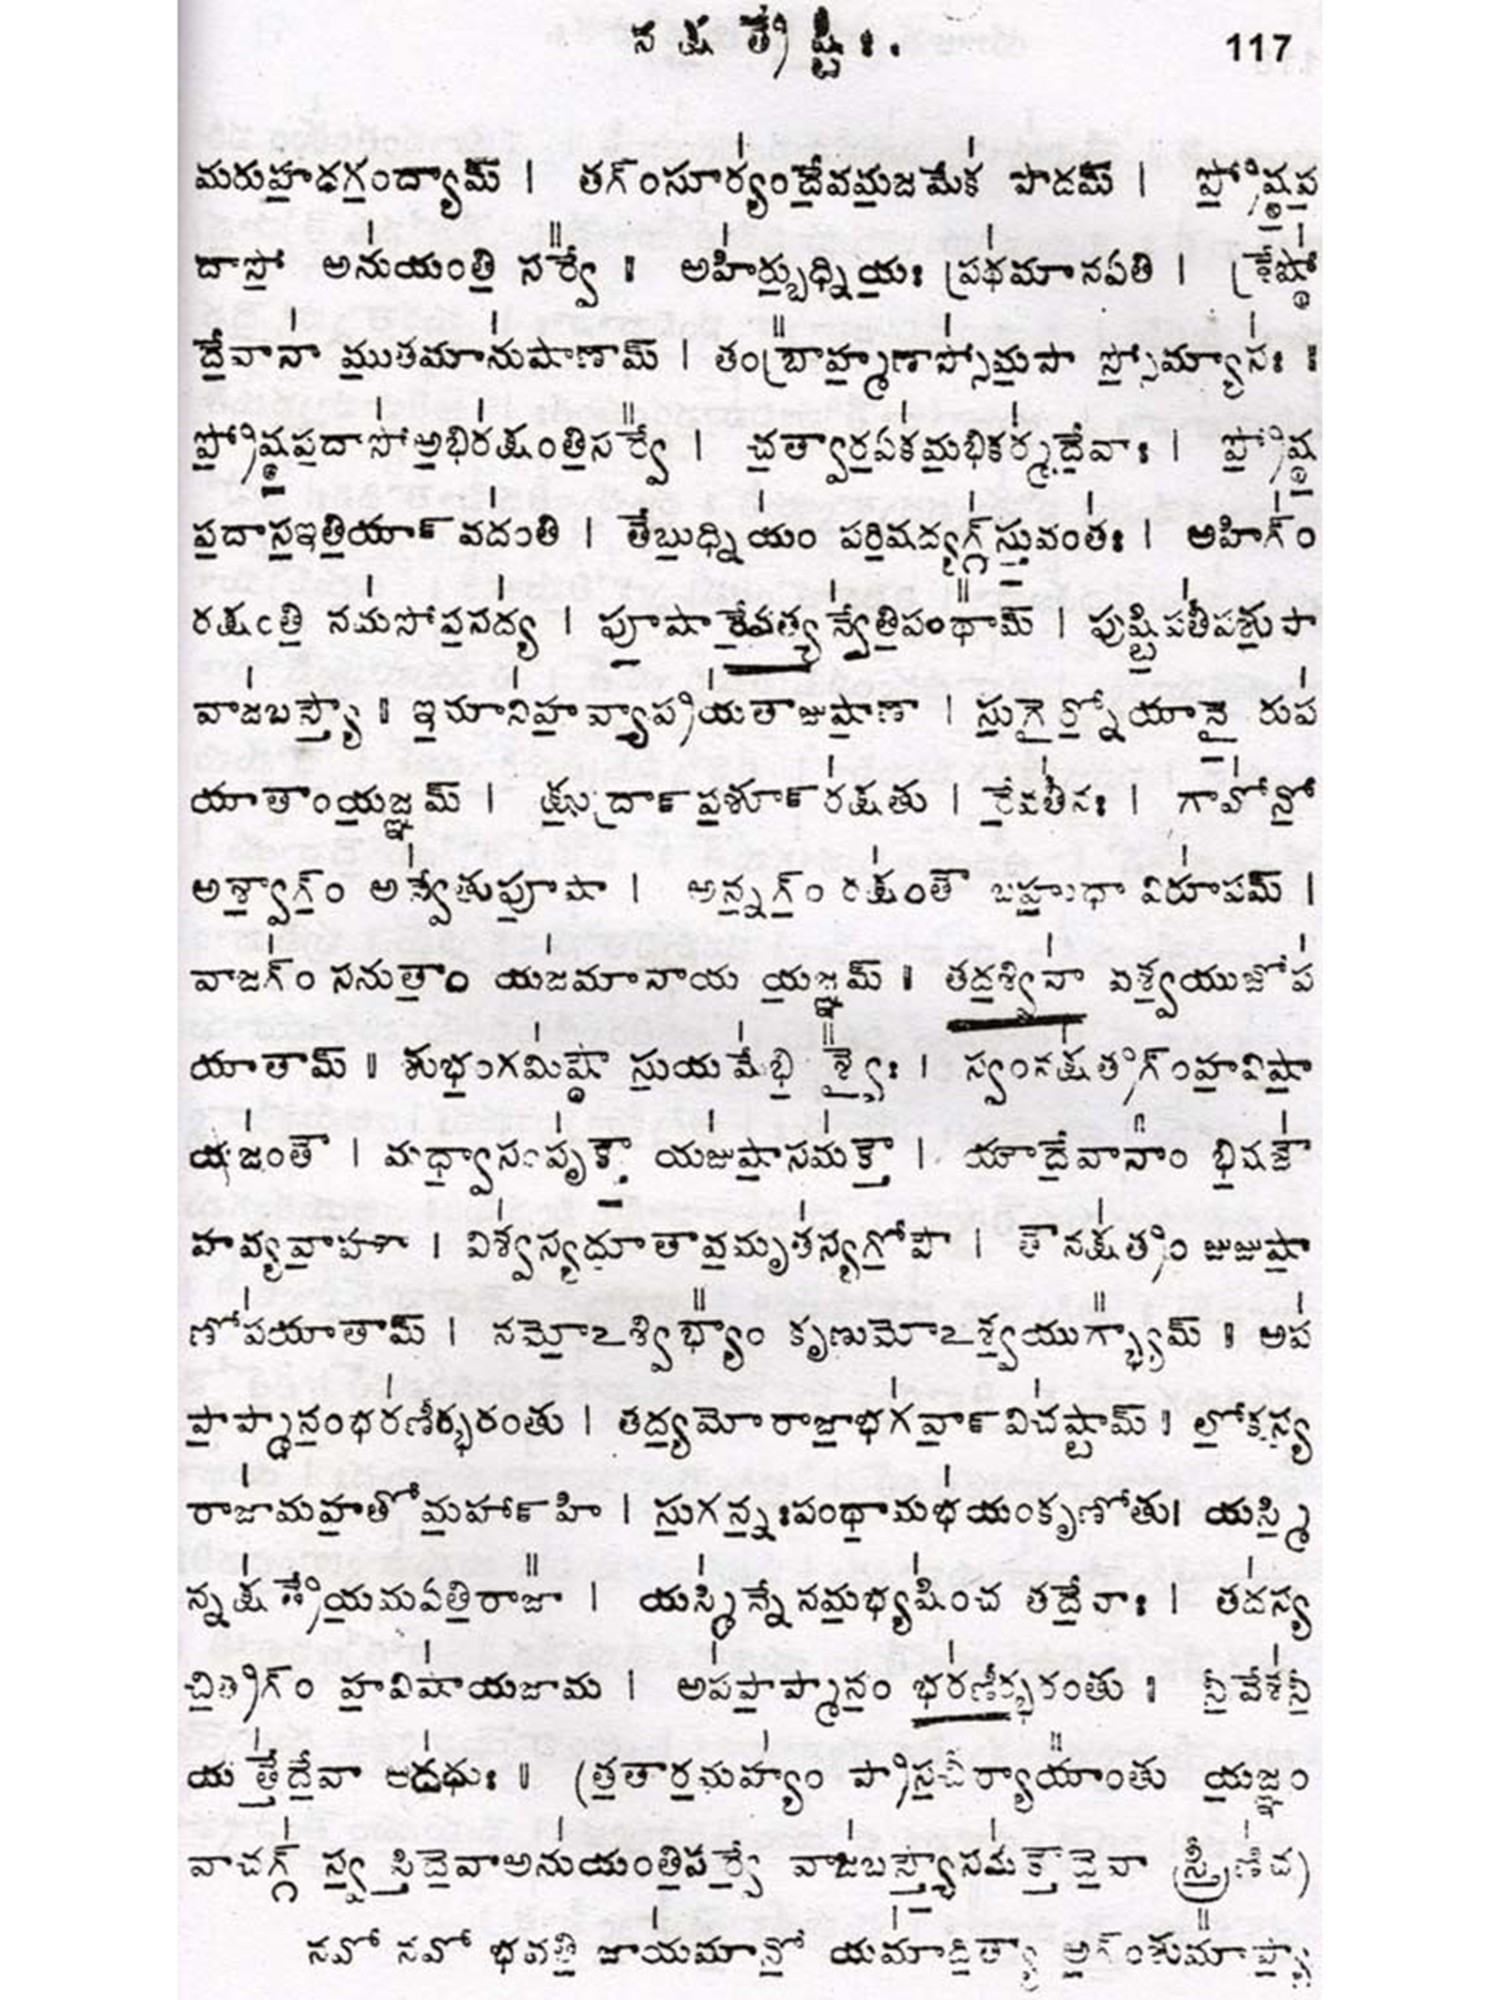 నక్షత్రేష్టిః. 117
మరుహ॒దగ॒ంద్యామ్ । తగ్ంసూర్య॑ందే॒వమ॒జమేక॑ పాదమ్ । ప్రో॒ష్ఠ॒ప॒
దాసో॒ అను॑యంతి॒ సర్వే᳚ ॥ అహి॑ర్బు॒ధ్నియ॒ః ప్రథ॑మానఏతి । శ్రేష్ఠో॑
దే॒వానా॑ ము॒తమాను॑షాణామ్ । తంబ్రా᳚హ్మ॒ణాస్సో॑మ॒పా స్సో॒మ్యాస॑ః ॥
ప్రో॒ష్ఠ॒ప॒దాసో॑అ॒భిర॑క్షంతి॒సర్వే᳚ । చ॒త్వార॒ఏక॑మ॒భికర్మ॑దే॒వాః । ప్రో॒ష్ఠ॒
ప॒దాస॒ఇతి॒యాన్ వద॑ంతి । తేబు॒ధ్నియ॑ం పరి॒షద్యగ్గ్॑స్తు॒వంత॑ః । అహిగ్॑ం
రక్షంతి॒ నమ॑సోప॒సద్య॑ । పూ॒షా రే॒వత్యన్వే॑తి॒పంథా᳚మ్ । పు॒ష్టి॒పతీ॑పశు॒పా
వాజ॑బస్త్యౌ ॥ ఇ॒మాని॑హ॒వ్యాప్రయ॑తాజుషా॒ణా । సు॒గైర్నో॒యానై॒ రుప॑
యాతాంయ॒జ్ఞమ్ । క్షు॒ద్రాన్ ప॒శూన్ ర॑క్షతు । రే॒వతీ॑నః । గావో॑నో॒
అశ్వా॒గ్॒ం అన్వే॑తుపూ॒షా । అన్న॒గ్॒ం రక్ష॑ంతౌ బహు॒ధా విరూ॑పమ్ ।
వాజగ్॑ం సనుతా॒ం యజ॑మానాయ య॒జ్ఞమ్ ॥ తద॒శ్వినా॑ వశ్వ॒యుజోప॑
యాతామ్ ॥ శుభ॒ంగమి॑ష్ఠౌ సు॒యమే॑భి రశ్వై᳚ః । స్వంనక్ష॑త్రగ్ంహ॒విషా॒
యజ॑ంతౌ । మధ్వా॒సంపృ॑క్తౌ॒ యజు॑షా॒సమ॑క్తౌ । యౌదే॒వానా᳚ం భి॒షజౌ॑
హవ్యవా॒హౌ । విశ్వ॑స్యదూ॒తావ॒మృత॑స్యగో॒పౌ । తౌనక్ష॑త్రం జుజుషా॒
ణోప॑యాతామ్ । నమో॒ఽశ్విభ్యా᳚ం కృణుమో॒ఽశ్వ॒యుగ్భ్యా᳚మ్ ॥ అప॑
పా॒ప్మాన॒ంభర॑ణీర్భరంతు । తద్య॒మో రాజా॒భగ॑వా॒న్ విచ॑ష్టామ్ ॥ లో॒కస్య॒
రాజా॑మహ॒తోమ॒హాన్ హి । సు॒గన్న॒ఃపంథా॒మభ॑యంకృణోతు। యస్మి॒
న్నక్ష॑త్రేయ॒మఏతి॒రాజా᳚ । యస్మి॑న్నేనమ॒భ్యషి॑ంచ తదే॒వాః । తద॑స్య
చి॒త్రగ్ం హ॒విషా॑యజామ । అప॑పా॒ప్మాన॒ం భర॑ణీర్భరంతు ॥ ని॒వేశ॑నీ॒
య త్తే॑దే॒వా అద॑ధుః ॥ (త్ర॒తార॒మహ్య॑ం పా॒సచీర్యా॑యా᳚ంతు య॒జ్ఞం
వాచగ్గ్॑ స్వస్తి॒దే॒వాఅను॑యంతి॒సర్వే వాజ॑బస్త్యౌ॒సమ॑క్తౌదే॒వా స్త్రీణి॑చ)
నవో నవో భవతి॒ జాయ॑మానో॒ యమా॑ది॒త్యా అ॒గ్ంశుమా᳚ప్యా॒